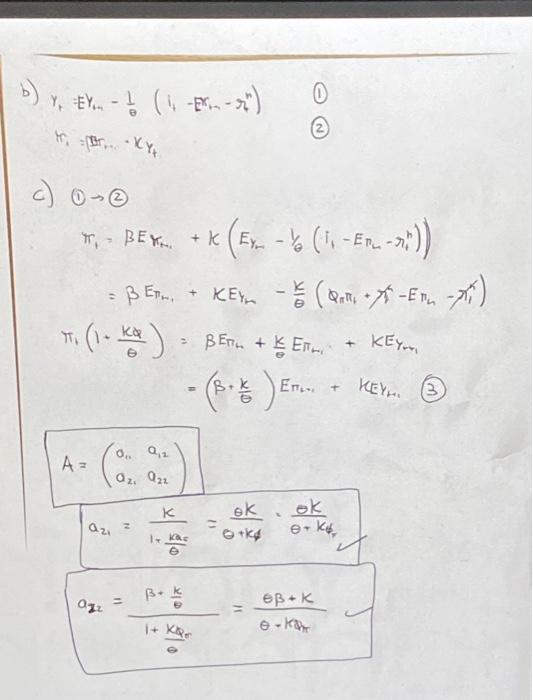 b) Y_t = EY_{t+1} - 1/θ (i_t - Eπ_{t+1} - r_t^n) ①
π_t = βEπ_{t+1} + κY_t ②
c) ① → ②
π_t = βEπ_{t+1} + K (EY_{t+1} - 1/θ (i_t - Eπ_{t+1} - r_t^n))
= βEπ_{t+1} + KEY_{t+1} - K/θ (Φ_π π_t + r_t^n - Eπ_{t+1} - r_t^n)
π_t (1 + KΦ/θ) = βEπ_{t+1} + K/θ Eπ_{t+1} + KEY_{t+1}
= (β + K/θ) Eπ_{t+1} + KEY_{t+1} ③
A = (a_{11} a_{12}
a_{21} a_{22})
a_{21} = K / (1 + KΦ_π/θ) = θK / (θ + Kφ) = θK / (θ + Kφ_π) ✓
a_{22} = (β + K/θ) / (1 + KΦ_π/θ) = (θβ + K) / (θ + KΦ_π) ✓